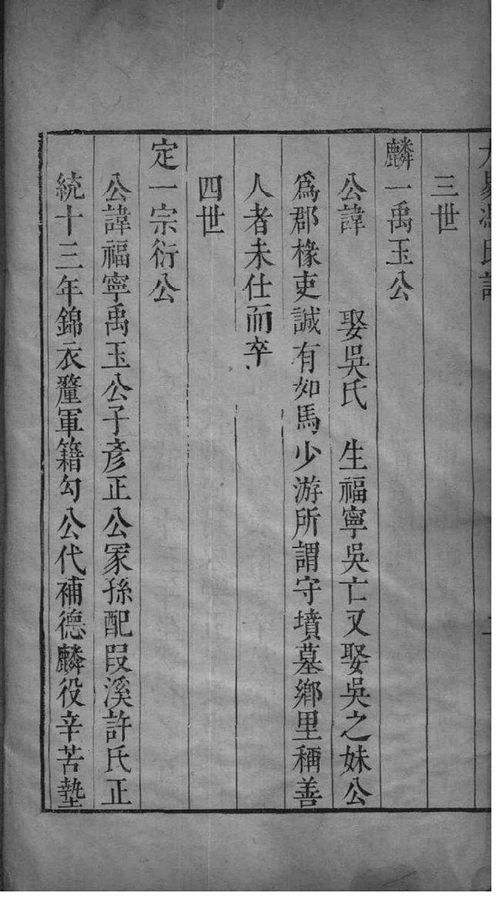 三世
麟一禹玉公
公諱　娶吳氏　生福寧吳亡又娶吳之妹公
爲郡椽吏誠有如馬少游所謂守墳墓鄉里稱善
人者未仕而卒
四世
定一宗衍公
公諱福寧禹玉公子彥正公冢孫配段溪許氏正
統十三年錦衣釐軍籍勾公代補德麟役辛苦墊